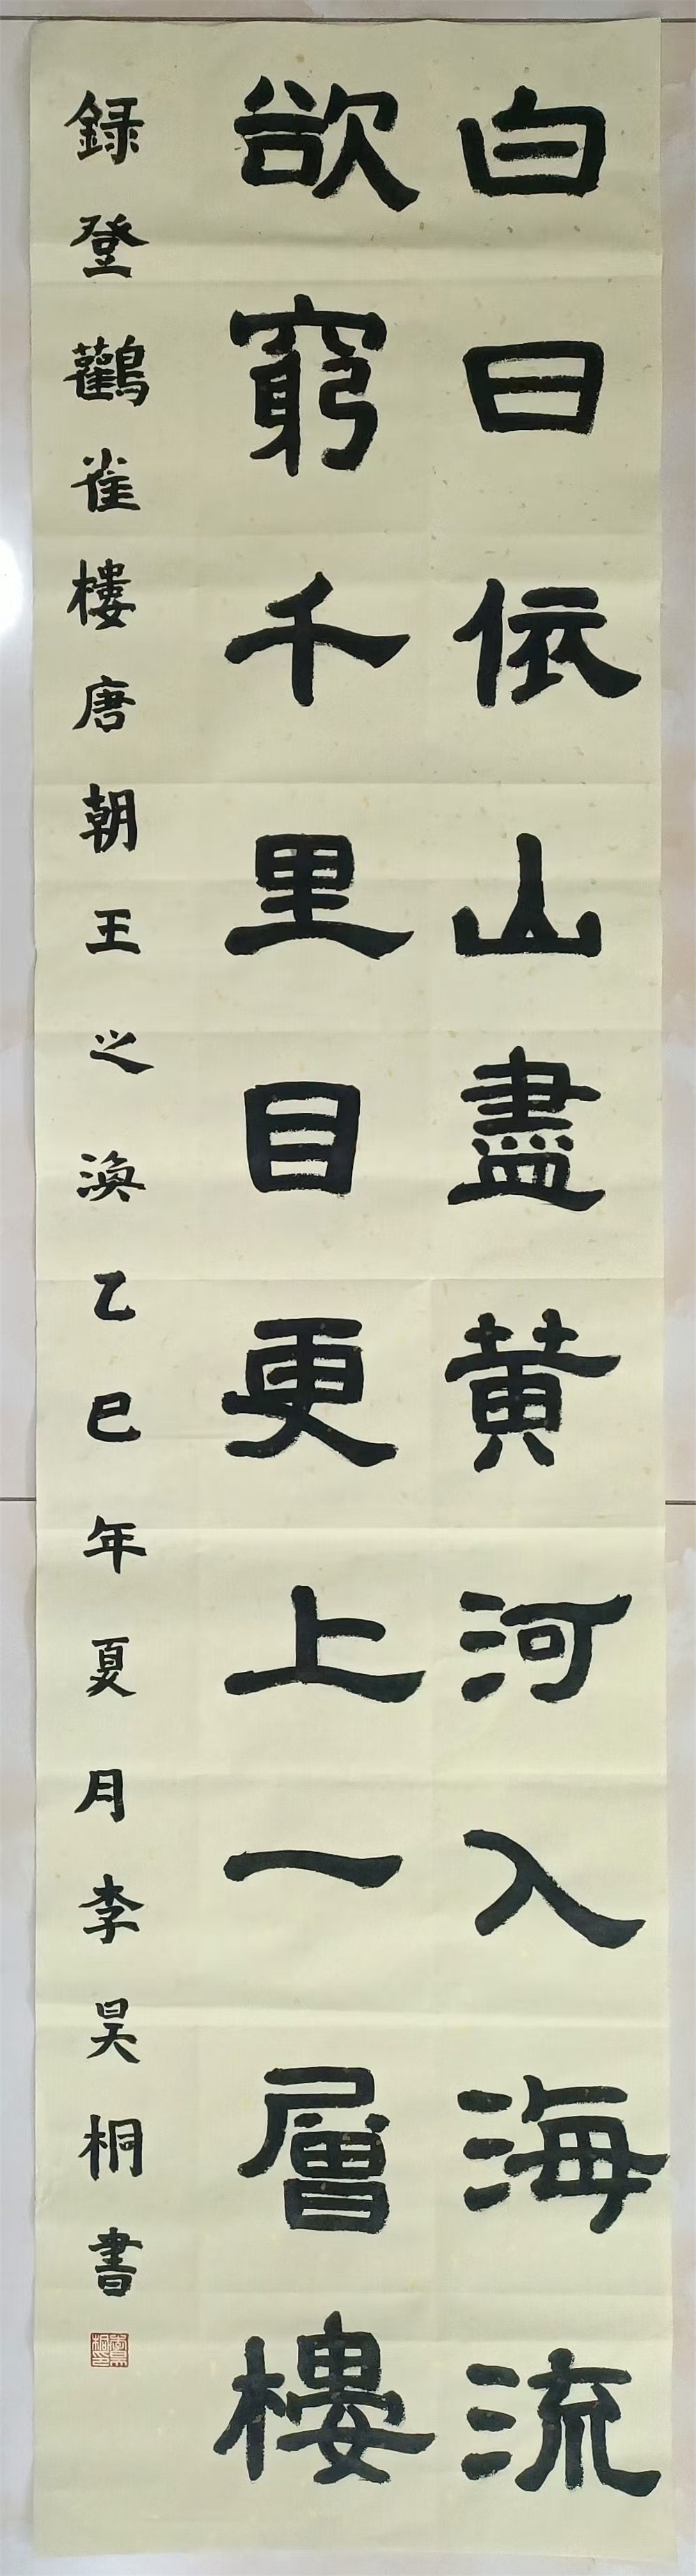 白日依山盡黄河入海流
欲窮千里目更上一層樓
録登鸛雀樓唐朝王之渙乙巳年夏月李昊桐書